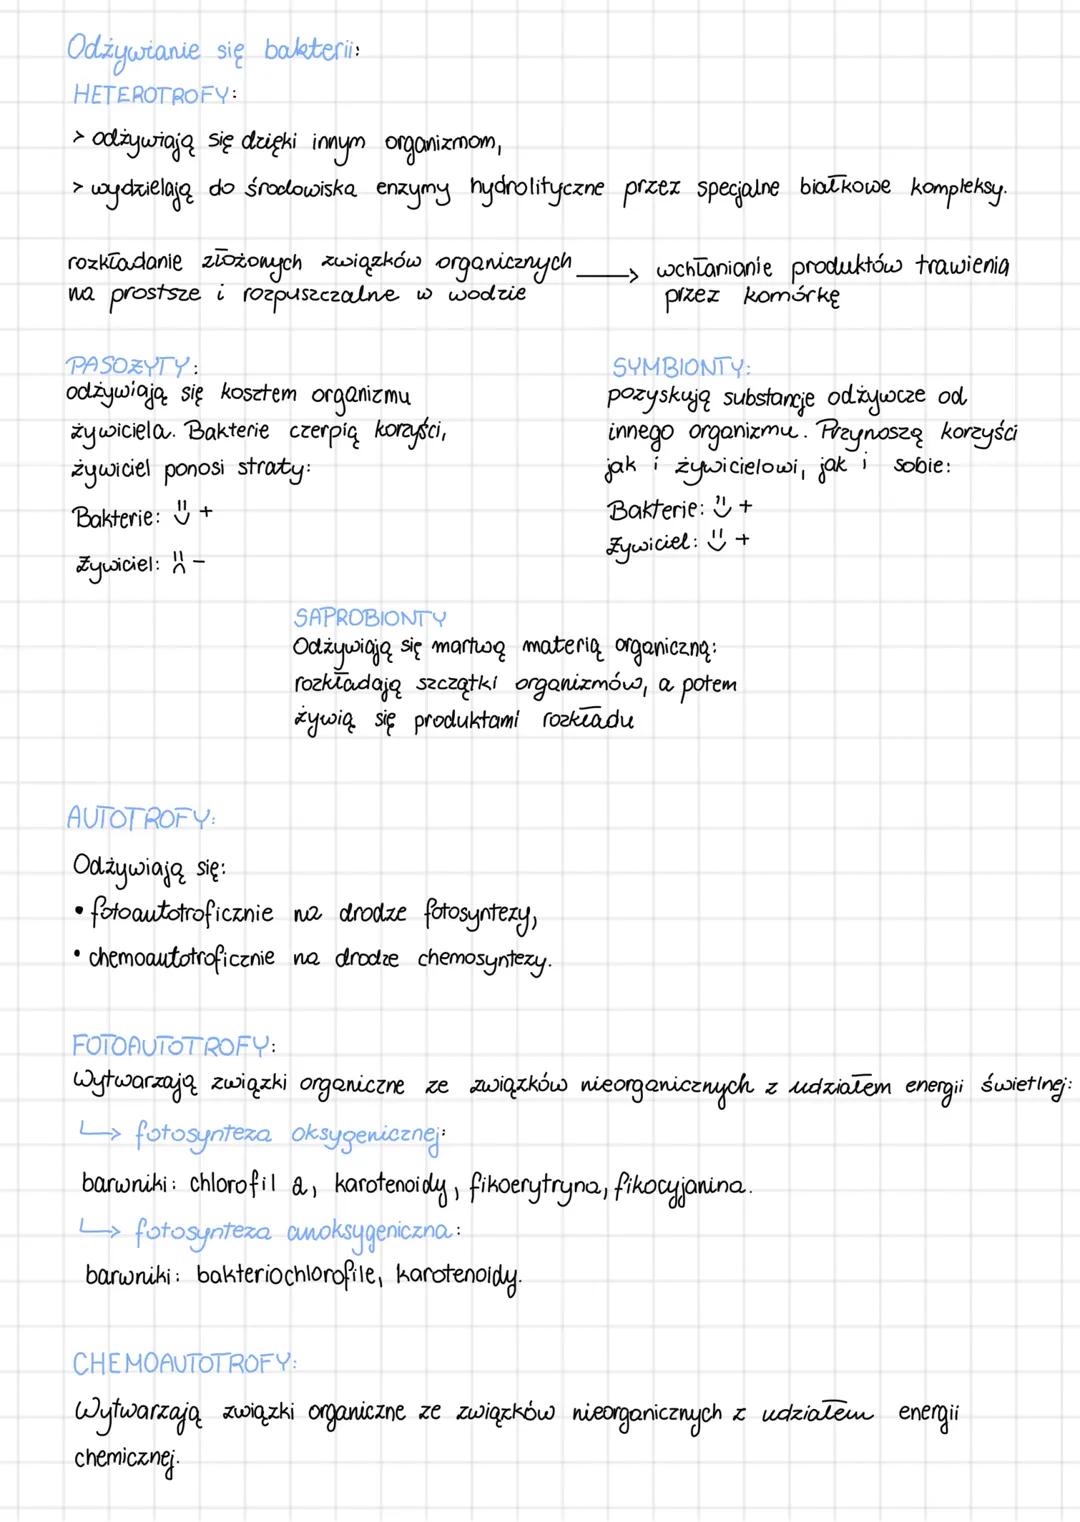 Odżywianie się bakterii:
HETEROTROFY:
> odżywiają się dzięki innym organizmom,
> wydzielają do środowiska enzymy hydrolityczne przez specjalne białkowe kompleksy.
rozkładanie złożonych związków organicznych → wchłanianie produktów trawienia
na prostsze i rozpuszczalne w wodzie przez komórkę
PASOŻYTY:
odżywiają się kosztem organizmu
żywiciela. Bakterie czerpią korzyści,
żywiciel ponosi straty:
Bakterie: +
Żywiciel: -
SYMBIONTY:
pozyskują substancje odżywcze od
innego organizmu. Przynoszą korzyści
jak i żywicielowi, jak i sobie:
Bakterie: +
Żywiciel: +
SAPROBIONTY
Odżywiają się martwą materią organiczną:
rozkładają szczątki organizmów, a potem
żywią się produktami rozkładu
AUTOTROFY:
Odżywiają się:
• fotoautotroficznie na drodze fotosyntezy,
• chemoautotroficznie na drodze chemosyntezy.
FOTOAUTOTROFY:
Wytwarzają związki organiczne ze związków nieorganicznych z udziałem energii świetlnej:
↳ fotosynteza oksygenicznej:
barwniki: chlorofil a, karotenoidy, fikoerytryna, fikocyjanina.
↳ fotosynteza anoksygeniczna:
barwniki: bakteriochlorofile, karotenoidy.
CHEMOAUTOTROFY:
Wytwarzają związki organiczne ze związków nieorganicznych z udziałem energii
chemicznej.